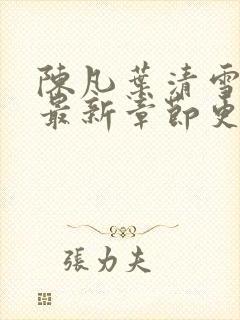 陳凡葉清雪
最新章節更
張力夫